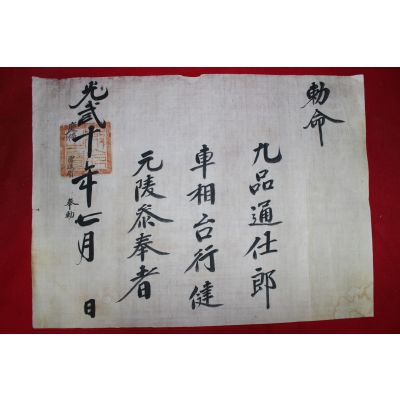 勅命
九品通仕郎
車相台行健
元陵叅奉者
光武十年七月 日
奉勅